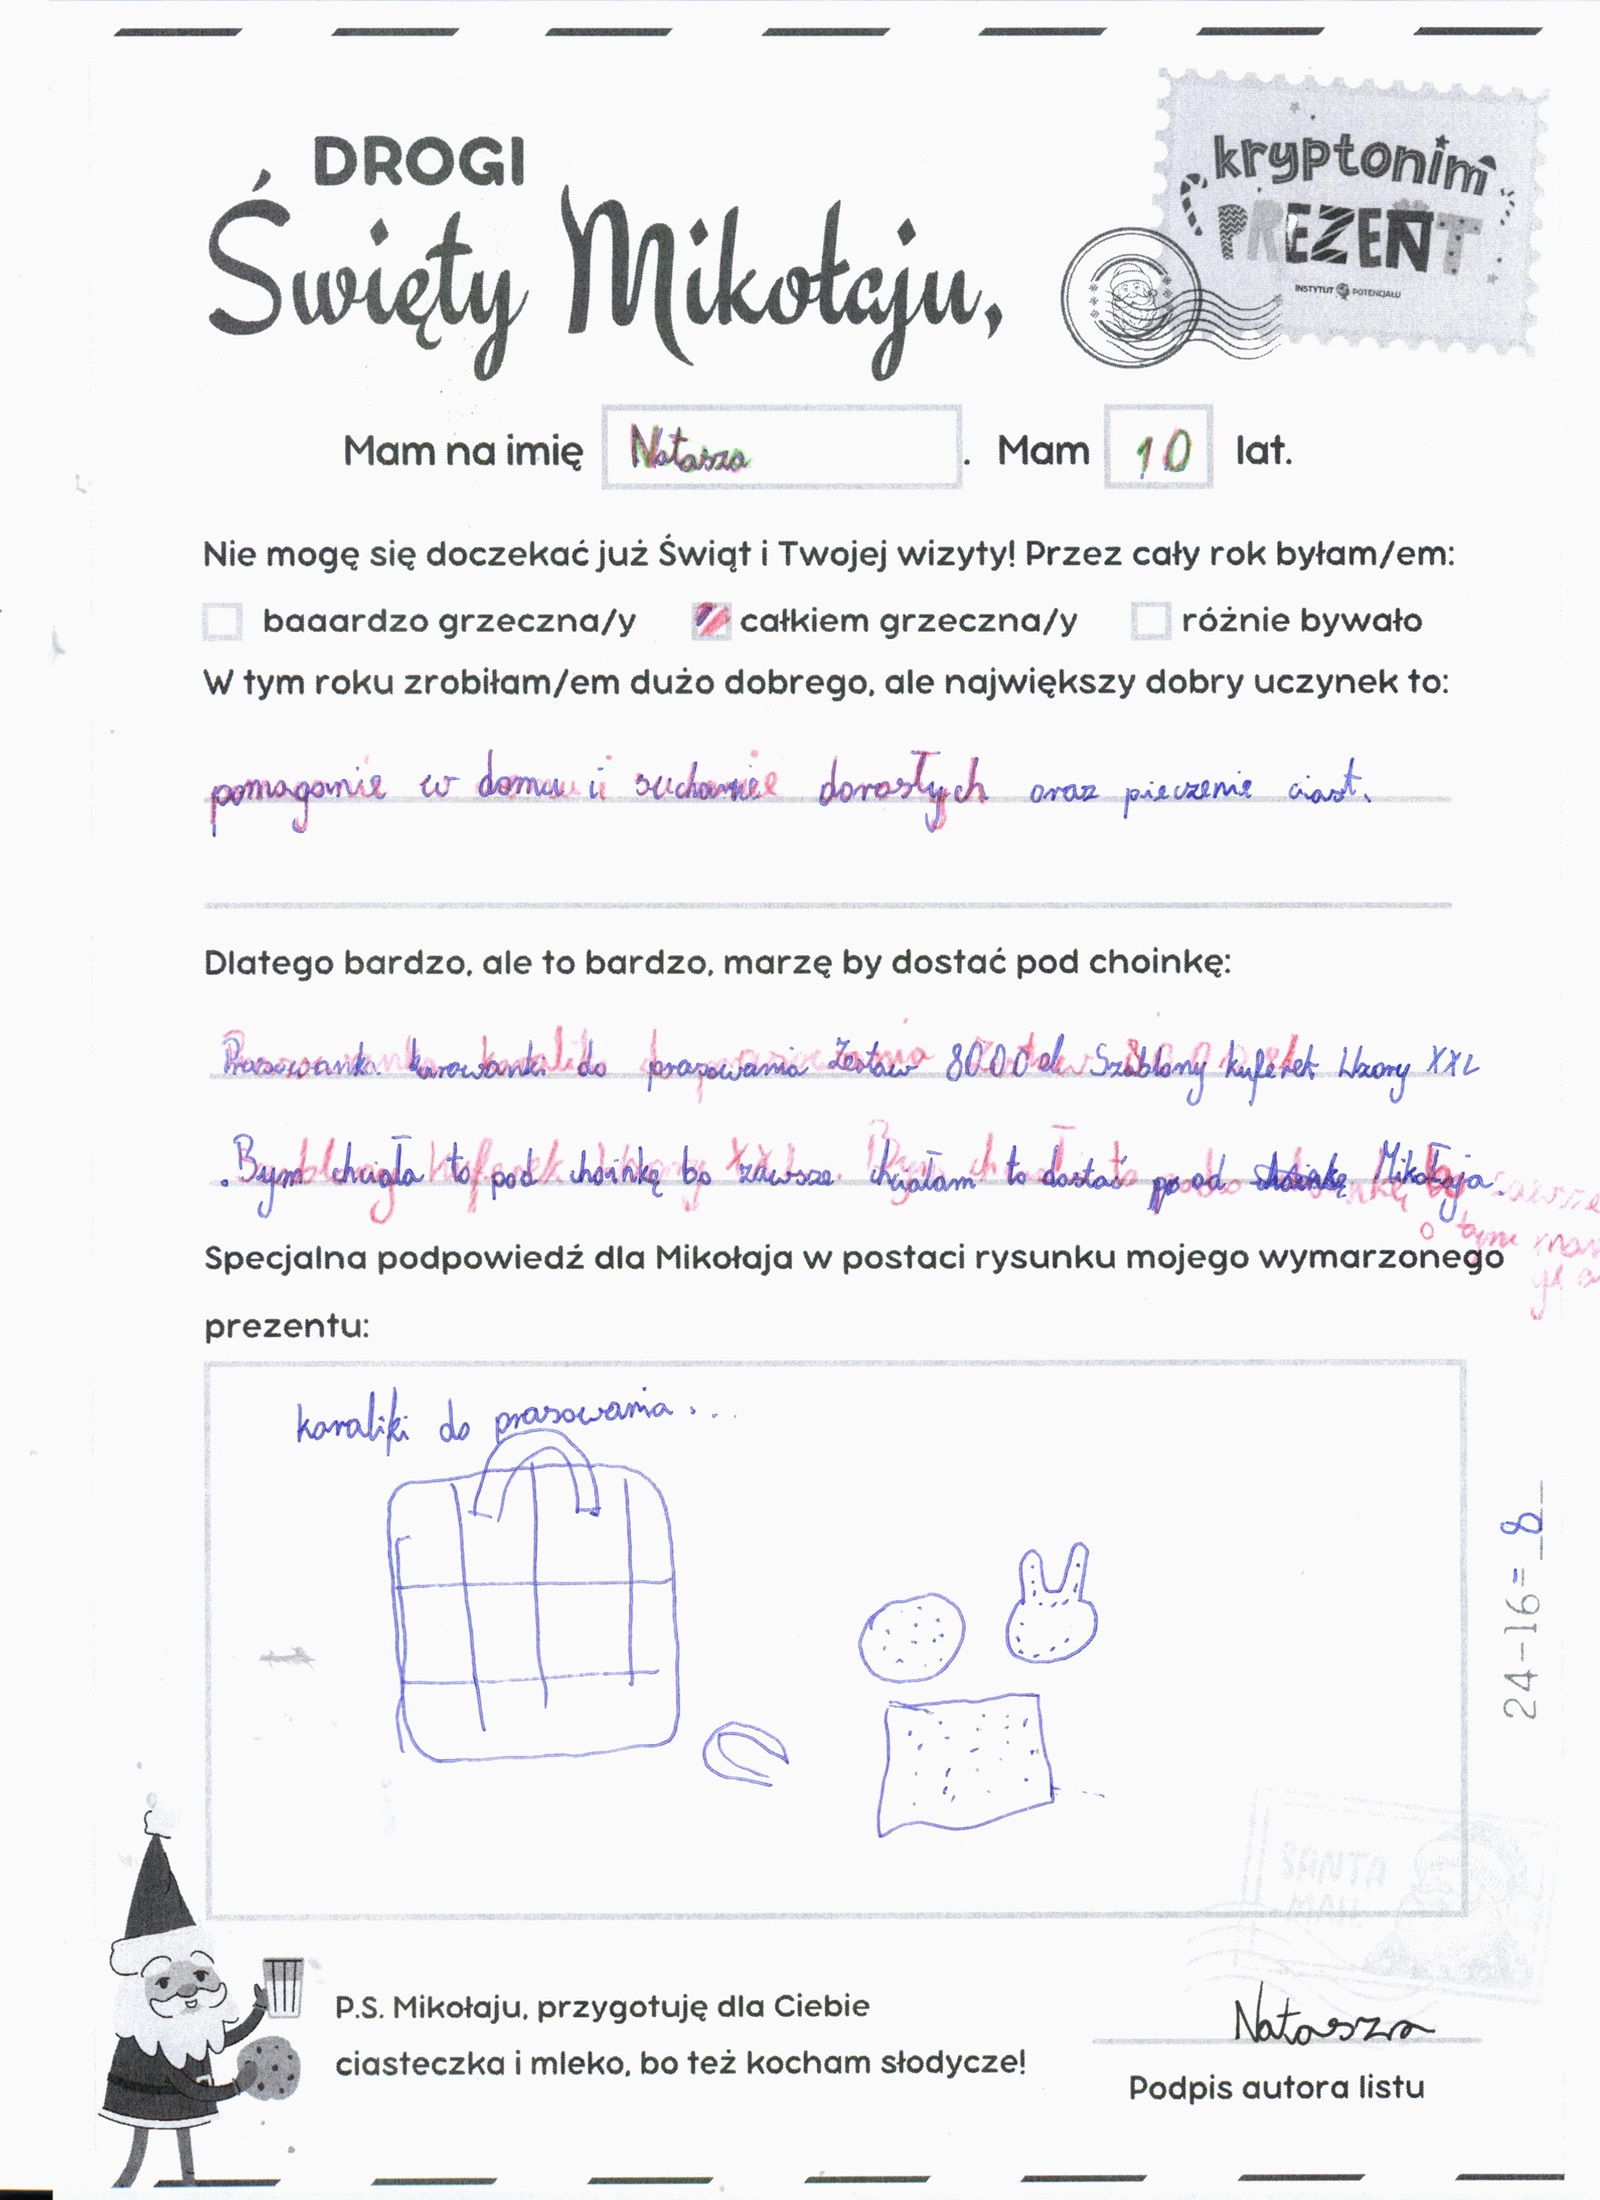 DROGI
Święty Mikołaju,
kryptonim
PREZENT
INSTYTUT POTENCJAŁU
Mam na imię Natasza. Mam 10 lat.
Nie mogę się doczekać już Świąt i Twojej wizyty! Przez cały rok byłam/em:
baaardzo grzeczna/y całkiem grzeczna/y różnie bywało
W tym roku zrobiłam/em dużo dobrego, ale największy dobry uczynek to:
pomaganie w domu i suchanie dorosłych oraz pieczenie ciast.
Dlatego bardzo, ale to bardzo, marzę by dostać pod choinkę:
Prasowanka do prasowania Zestaw 8000 el Szablony kuferek Wzory XXL
. Bym chciała to pod choinkę bo zawsze chciałam to dostać od choinkę Mikołaja.
Specjalna podpowiedź dla Mikołaja w postaci rysunku mojego wymarzonego
prezentu:
koraliki do prasowania...
24-16=8
SANTA
P.S. Mikołaju, przygotuję dla Ciebie
ciasteczka i mleko, bo też kocham słodycze!
Natasza
Podpis autora listu